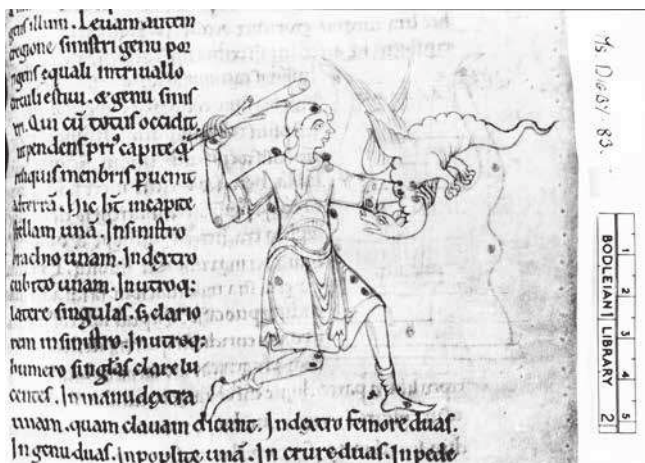 gens illum. Leuam autem
eregione sinistri genu por
gens equali interuallo
circuli estiui. & genu sinis
tri. Qui cū totus occidit
pendens capite
reliquis menbris puenit
terrā. Hic ht̄ in capite
stellam unā. In sinistro
brachio unam. In dextro
cubito unam. In utroq:
latere singulas. s; clario
rem in sinistro. In utroq:
humero singl'as clare lu
centes. In manu dextra
unam. quam clauam dicunt. In dextro femore duas.
In genu duas. in poplite unā. In crure duas. In pede
Ms. DIGBY 83.
BODLEIAN LIBRARY
1 2 3 4 5
2